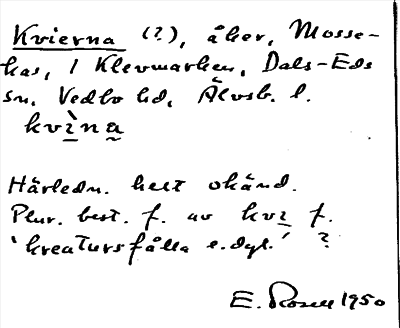 Kvierna (?), åker, Mosse-
kas, 1 Klevmarken, Dals-Eds
sn, Vedbo hd, Älvsb. l.
kvìna
Härledn. helt okänd.
Plur. best. f. av kvi f.
'kreatursfålla e.dyl.' ?
E. Rosell 1950